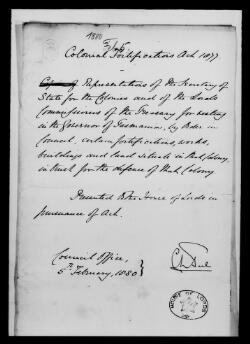 1880
Colonial Fortifications Act 1877
Copy of Representations of the Secretary of
State for the Colonies and of the Lords
Commissioners of the Treasury for vesting
in the Governor of Tasmania, by Order in
Council, certain fortifications, works,
buildings and land situate in that Colony,
in trust for the defence of that Colony
Presented to the House of Lords in
pursuance of Act.
Council Office,
5th February, 1880
HOUSE OF LORDS